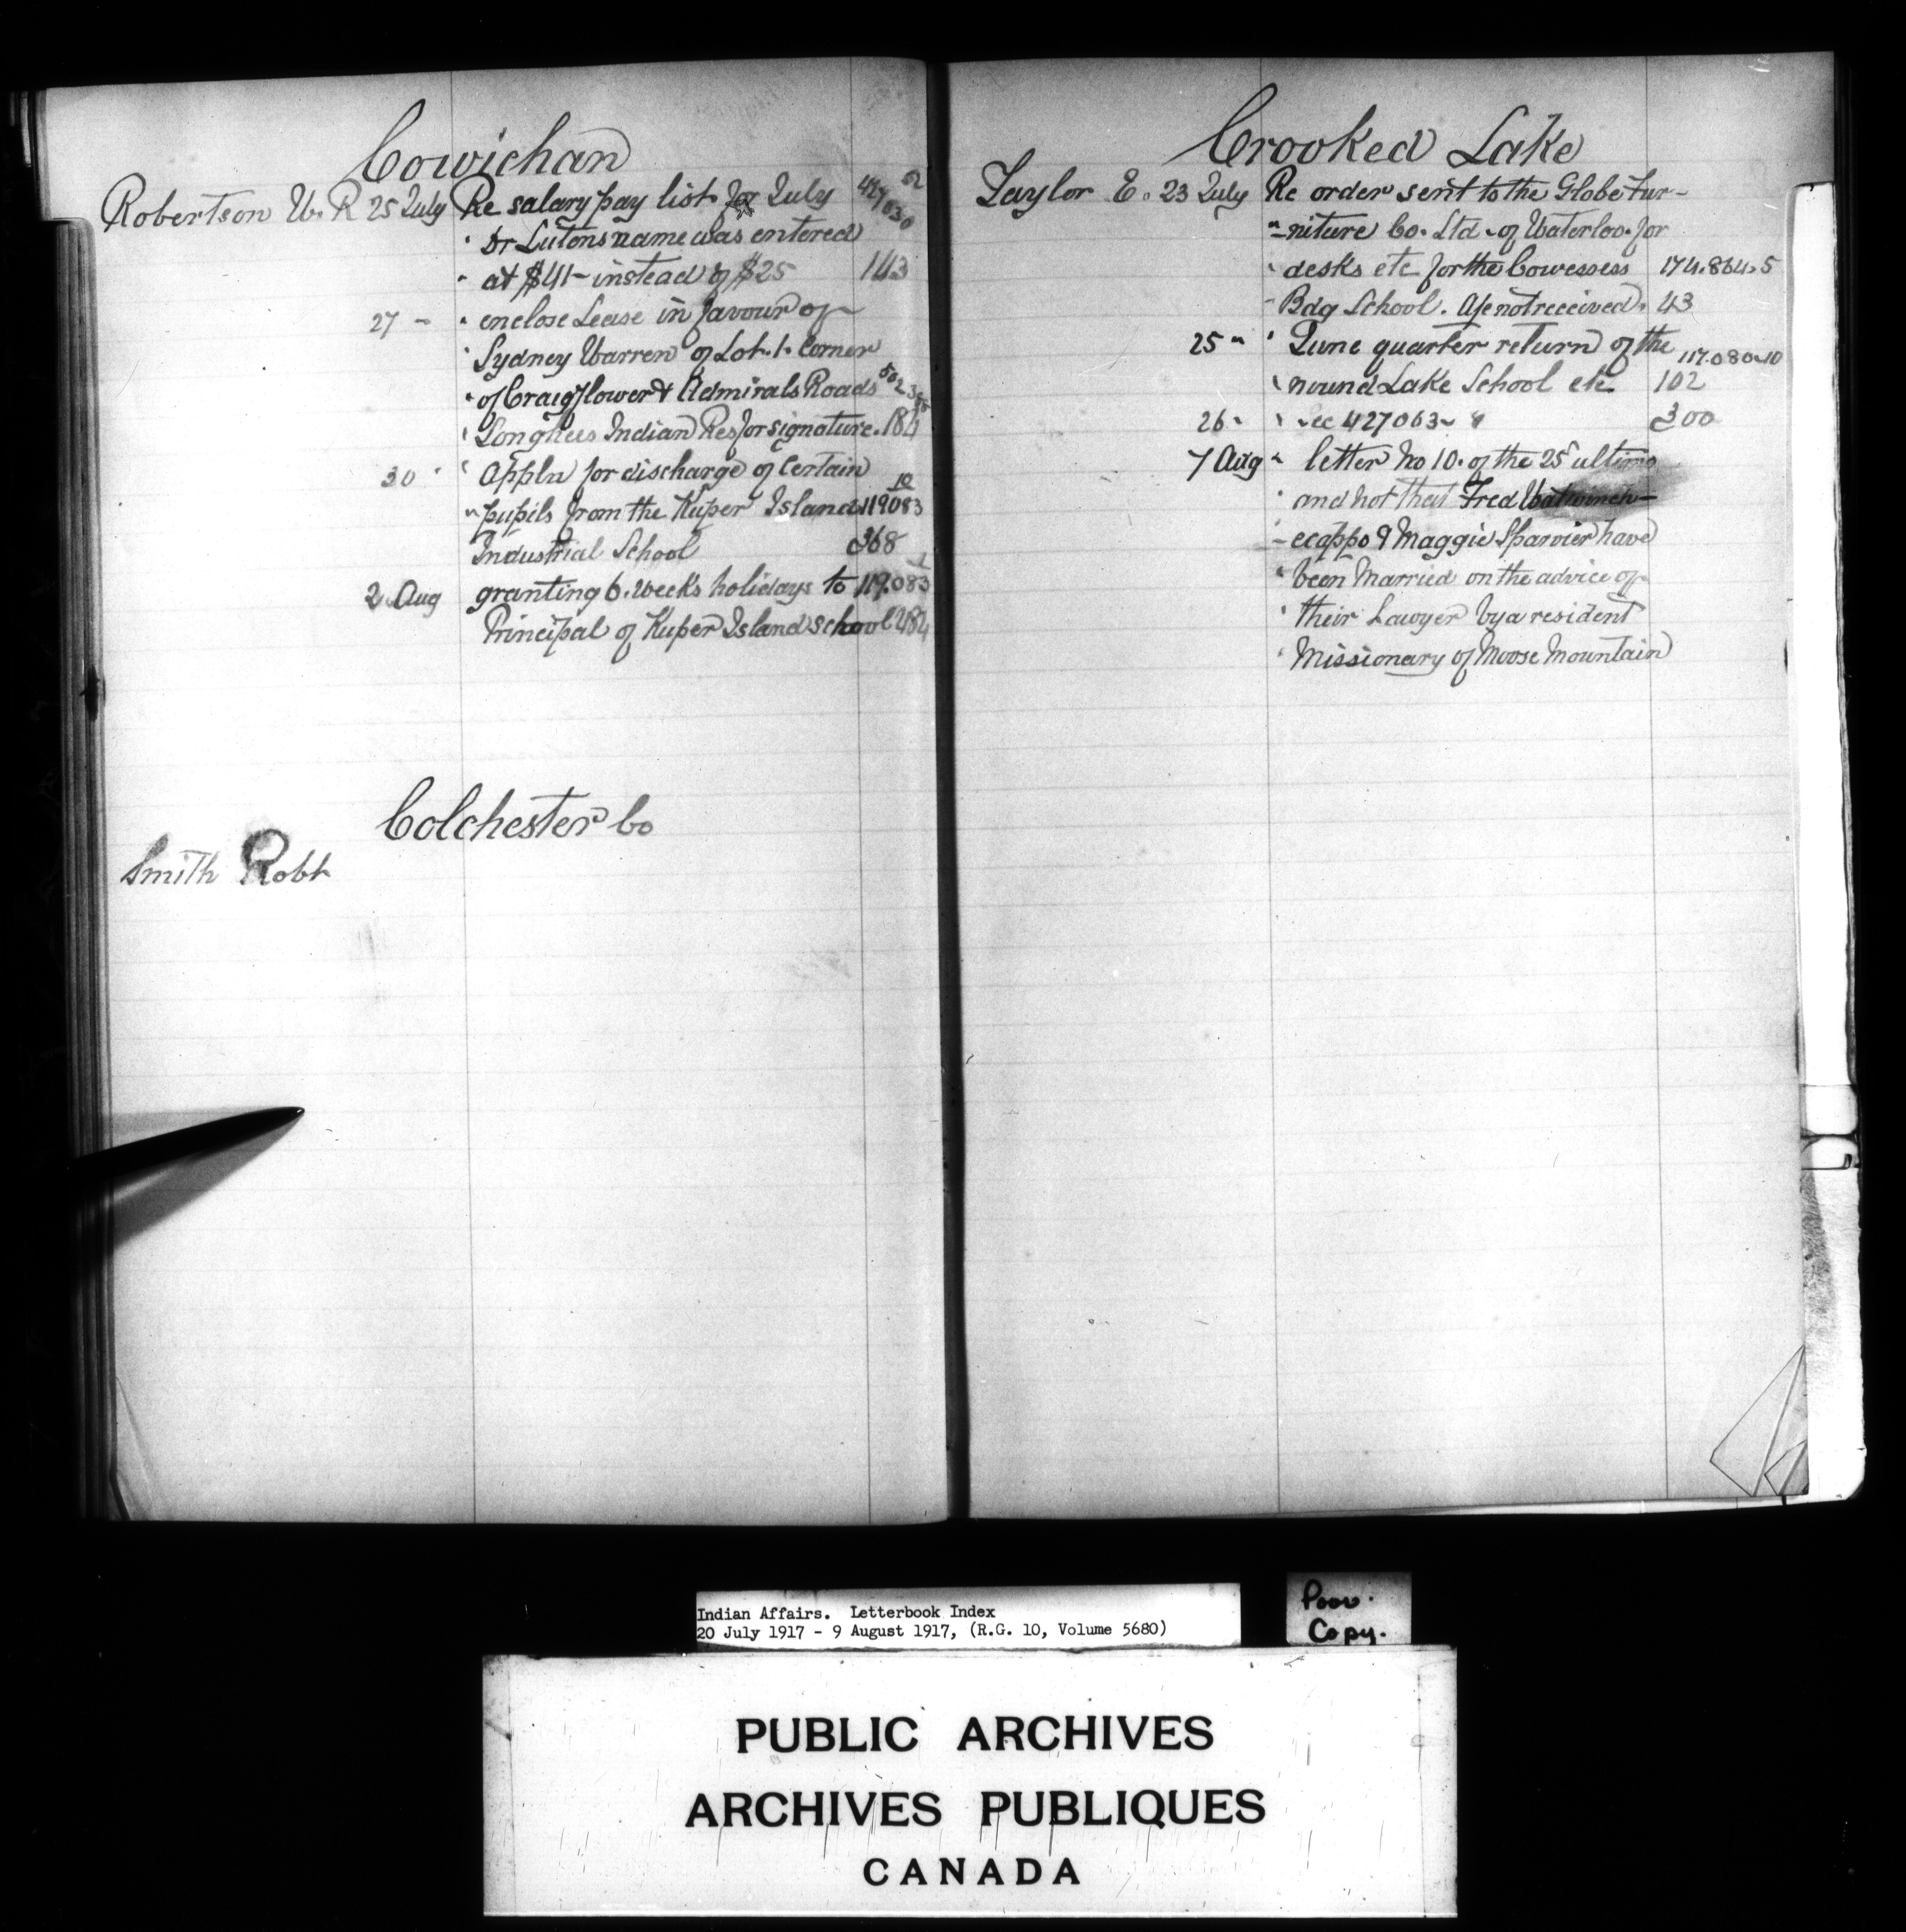 Cowichan
Robertson W. R 25 July Re salary pay list for July
" Dr Lutons name was entered
" at $41- instead of $25 143
27 - " enclose Lease in favour of
" Sydney Warren of Lot. 1. Corner
" of Craigflower & Admirals Roads
" Songhees Indian Res for signature. 184
30 " " Appln for discharge of Certain 10
" pupils from the Kuper Island 119083
Industrial School 368
2 Aug granting 6. weeks holidays to 119.083
Principal of Kuper Island school 484
Colchester Co
Smith Robt
Crooked Lake
Taylor E. 23 July Re order sent to the Globe Fur-
"-niture Co. Ltd. of Waterloo. for
" desks etc for the Cowessess 174.864.5
" Bdg School. A/c not received. 43
25 " " June quarter return of the 117.080-10
" round Lake School etc 102
26 " " Rec 427063- 300
7 Aug " letter No 10. of the 25 ultimo
" and not that Fred
- ecappo & Maggie Sparvier have
" been Married on the advice of
" their Lawyer by a resident
" Missionary of Moose Mountain
Indian Affairs. Letterbook Index
20 July 1917 - 9 August 1917, (R.G. 10, Volume 5680)
Poor.
Copy.
PUBLIC ARCHIVES
ARCHIVES PUBLIQUES
CANADA